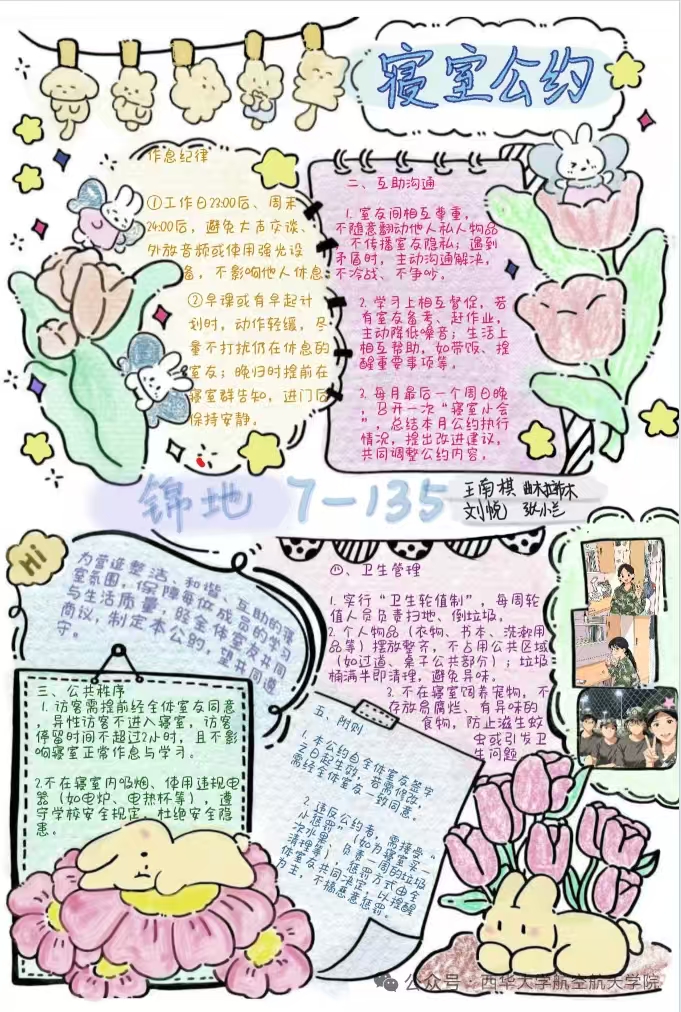 寝室公约
作息纪律
①工作日23:00后、周末
24:00后，避免大声交谈、
外放音频或使用强光设
备，不影响他人休息
②早课或有早起计
划时，动作轻缓，尽
量不打扰仍在休息的
室友；晚归时提前在
寝室群告知，进门后
保持安静。
二、互助沟通
1. 室友间相互尊重，
不随意翻动他人私人物品
不传播室友隐私；遇到
矛盾时，主动沟通解决，
不冷战、不争吵。
2. 学习上相互督促，若
有室友备考、赶作业，
主动降低噪音；生活上
相互帮助，如带饭、提
醒重要事项等，
3. 每月最后一个周日晚
，召开一次“寝室小会
”，总结本月公约执行
情况，提出改进建议，
共同调整公约内容，
锦地 7-135
王南棋
刘悦 张小兰
Hi
为营造整洁、和谐、互助的寝
室氛围，保障每位成员的学习
与生活质量，经全体室友共同
商议，制定本公约，望共同遵
守。
三、公共秩序
1. 访客需提前经全体室友同意
，异性访客不进入寝室，访客
停留时间不超过2小时，且不影
响寝室正常作息与学习。
2.不在寝室内吸烟、使用违规电
器（如电炉、电热杯等），遵
守学校安全规定，杜绝安全隐
患。
四、卫生管理
1. 实行“卫生轮值制”，每周轮
值人员负责扫地、倒垃圾，
2. 个人物品（衣物、书本、洗漱用
品等）摆放整齐，不占用公共区域
（如过道、桌子公共部分）；垃圾
桶满半即清理，避免异味。
3. 不在寝室饲养宠物，不
存放易腐烂、有异味的
食物，防止滋生蚊
虫或引发卫
生问题
五、附则
1. 本公约自全体室友签字
之日起生效，若需修改，
需经全体室友一致同意。
2. 违反公约者，需接受“
小惩罚”（如为寝室买一
次水果、负责一周的垃圾
清理等），惩罚方式由全
体室友共同决定，以提醒
为主，不搞恶意惩罚。
公众号·西华大学航空航天学院